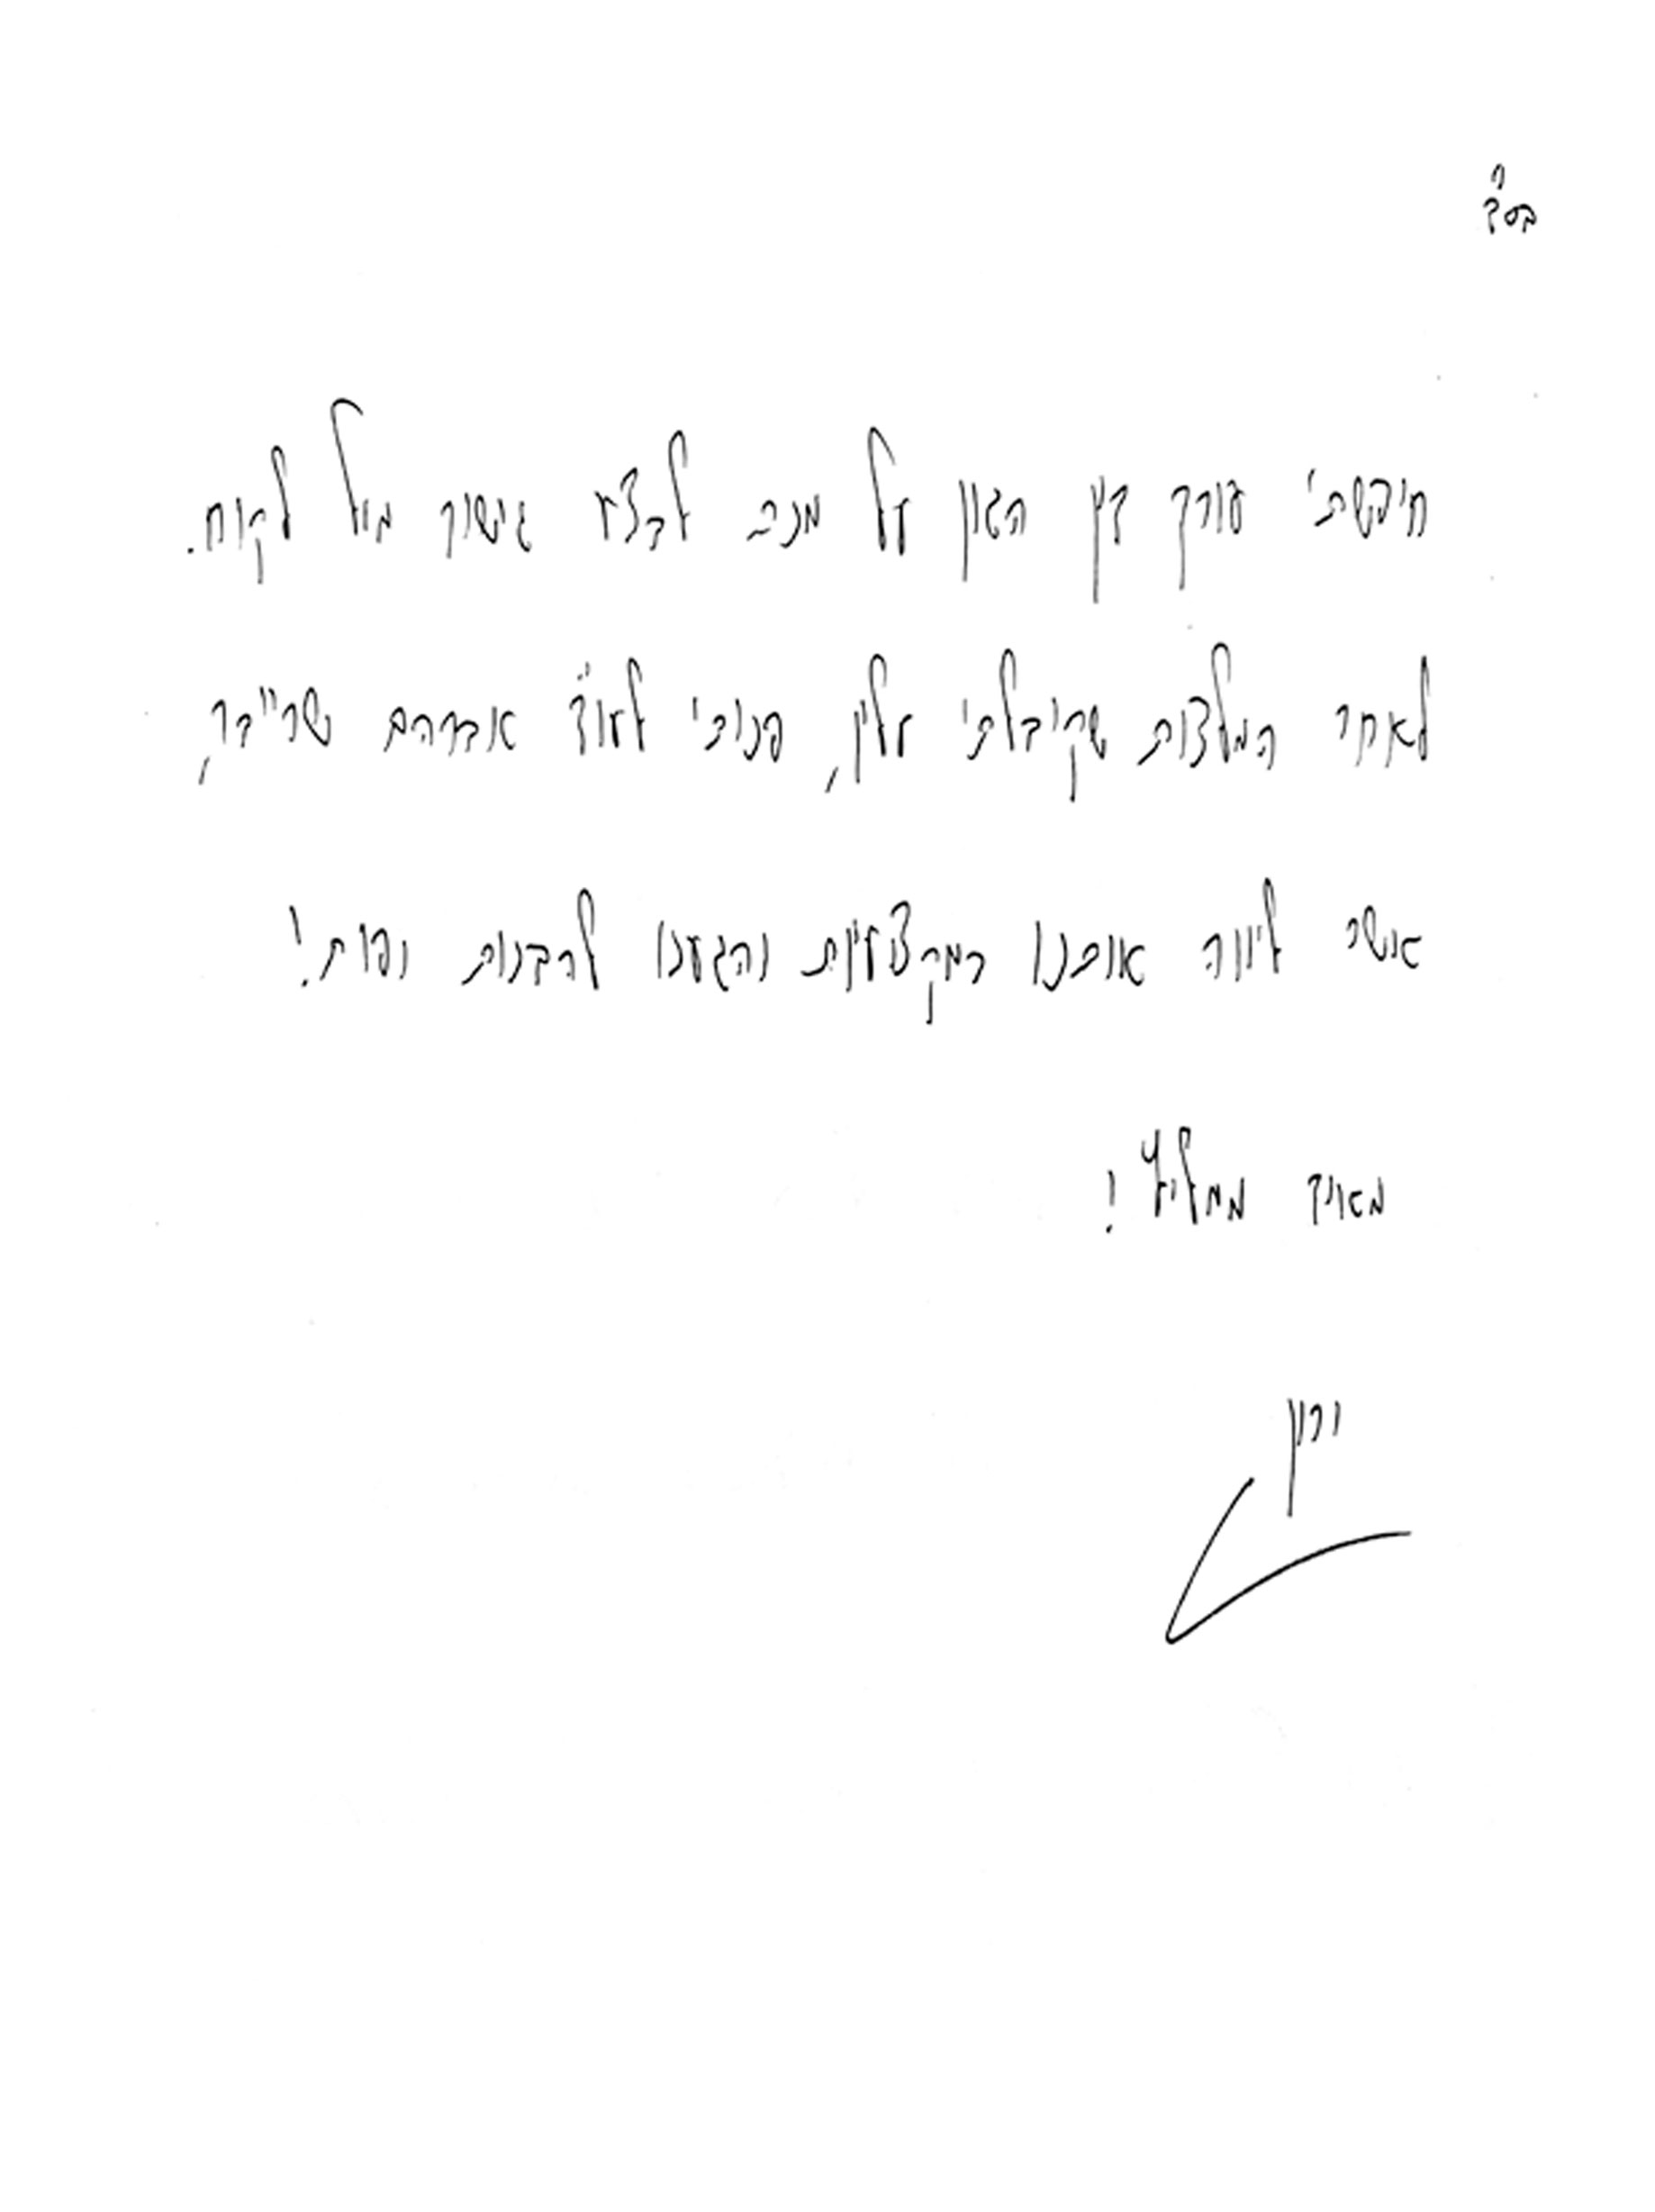 בס"ד
חיפשתי עורך דין הגון על מנת לבצע גישור מול לקוח.
לאחר המלצות שקיבלתי עליו, פניתי לעו"ד אברהם שרייבר,
אשר ליווה אותנו במקצועיות והגענו להבנות יפות!
מאוד ממליץ!
ירון